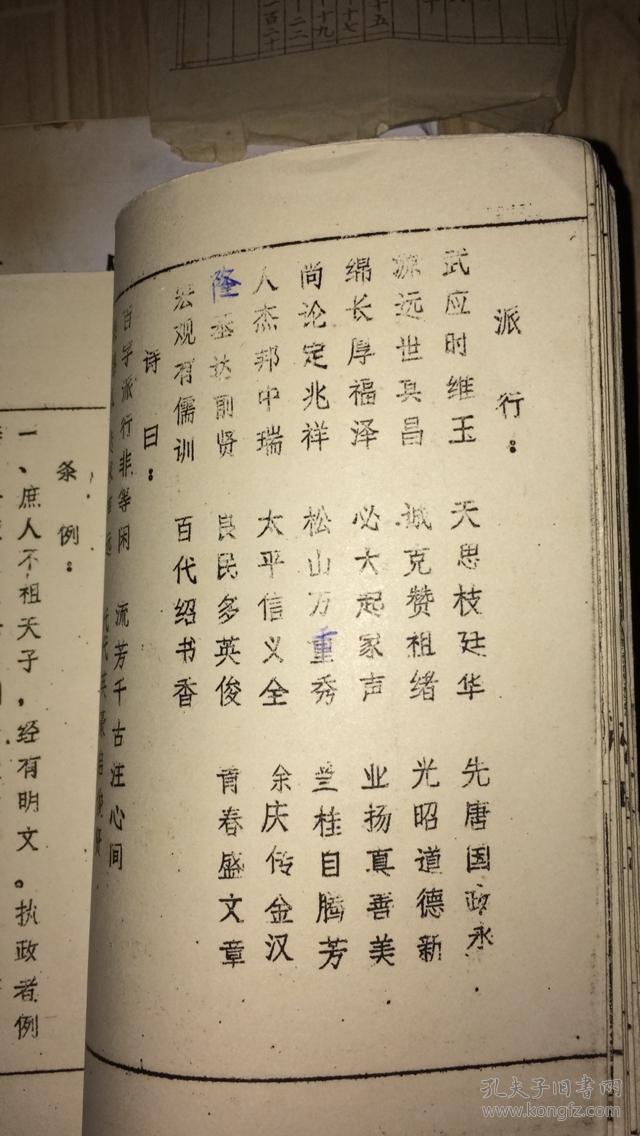 派行：
武应时维玉 天思枝廷华 先唐国政永
源远世其昌 诚克赞祖绪 光昭道德新
绵长厚福泽 必大起家声 业扬真善美
尚论定兆祥 松山万重秀 兰桂自腾芳
人杰邦中瑞 太平信义全 余庆传金汉
隆基达前贤 良民多英俊 青春盛文章
宏观有儒训 百代绍书香
诗曰：
百字派行非等闲 流芳千古注心间
条例：
一、庶人不祖天子，经有明文。执政者例
孔夫子旧书网
www.kongfz.com